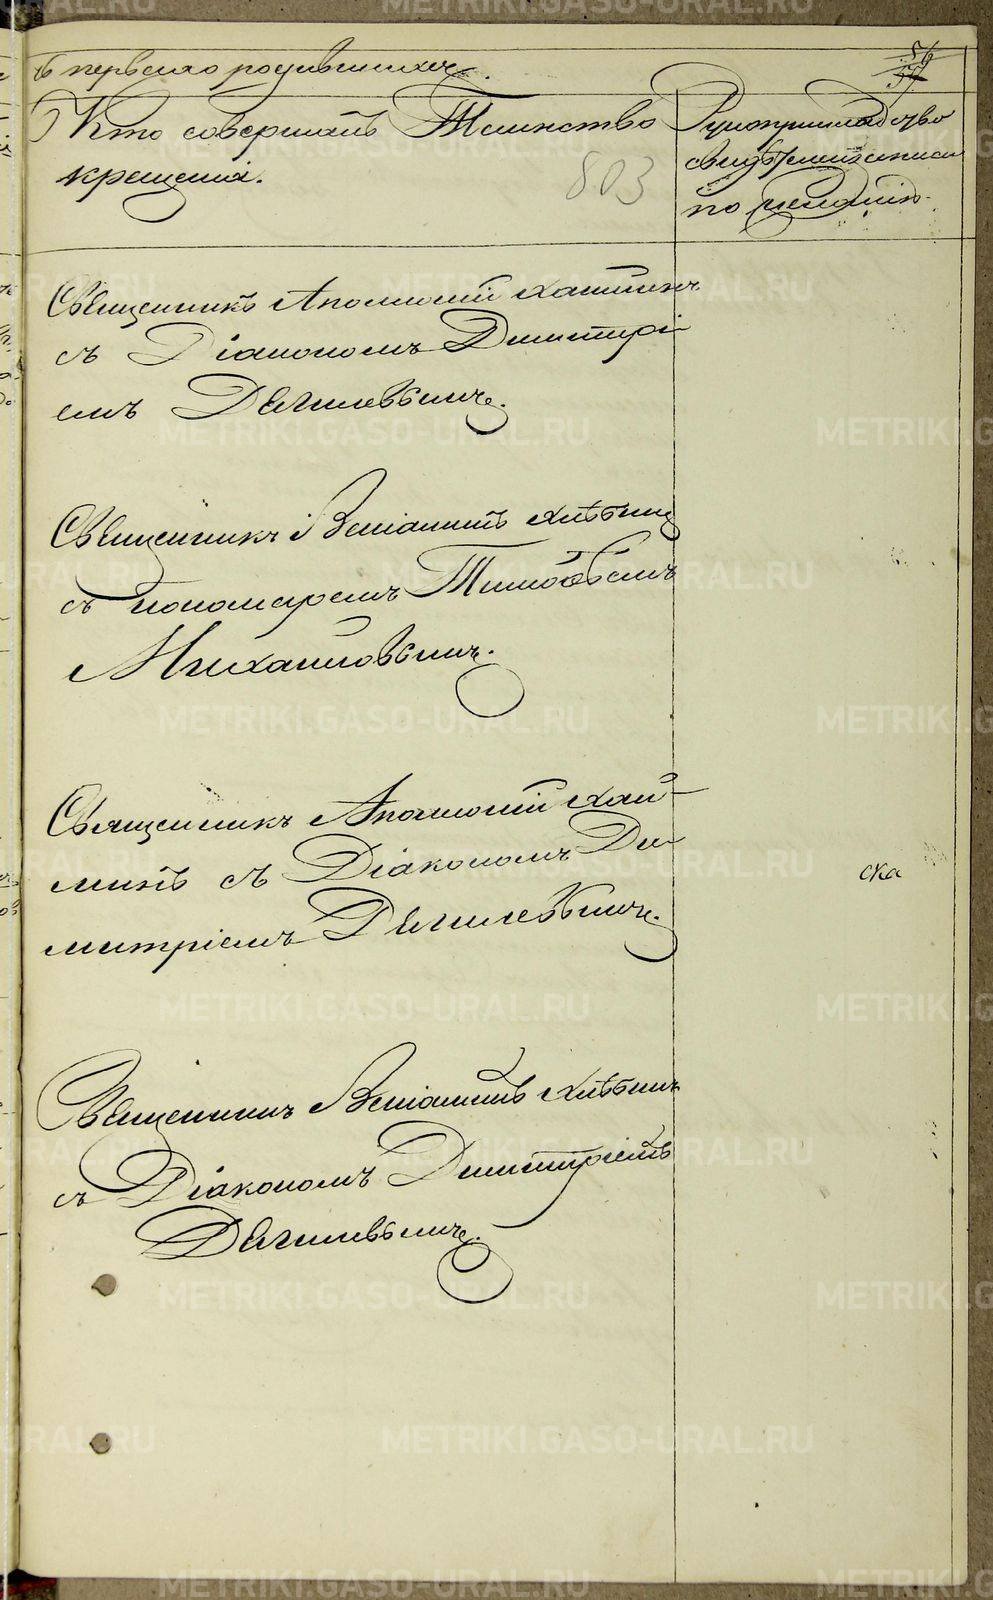 ь первая о родившихся.
56
57
Кто совершалъ Таинство
крещенія.
803
Рукоприкладство
свидѣтелей записи
по желанію.
Священникъ Аполлоній Ханминъ
съ Діакономъ Димитрі
емъ Дягилевымъ.
Священникъ Веніаминъ Хлѣбин
съ пономаремъ Тимоѳеемъ
Михайловымъ.
Священникъ Аполлоній Хан-
минъ съ Діакономъ Ди-
митріемъ Дягилевымъ.
ска
Священникъ Веніаминъ Хлѣбинъ
съ Діакономъ Димитріемъ
Дягилевымъ.
METRIKI.GASO-URAL.RU